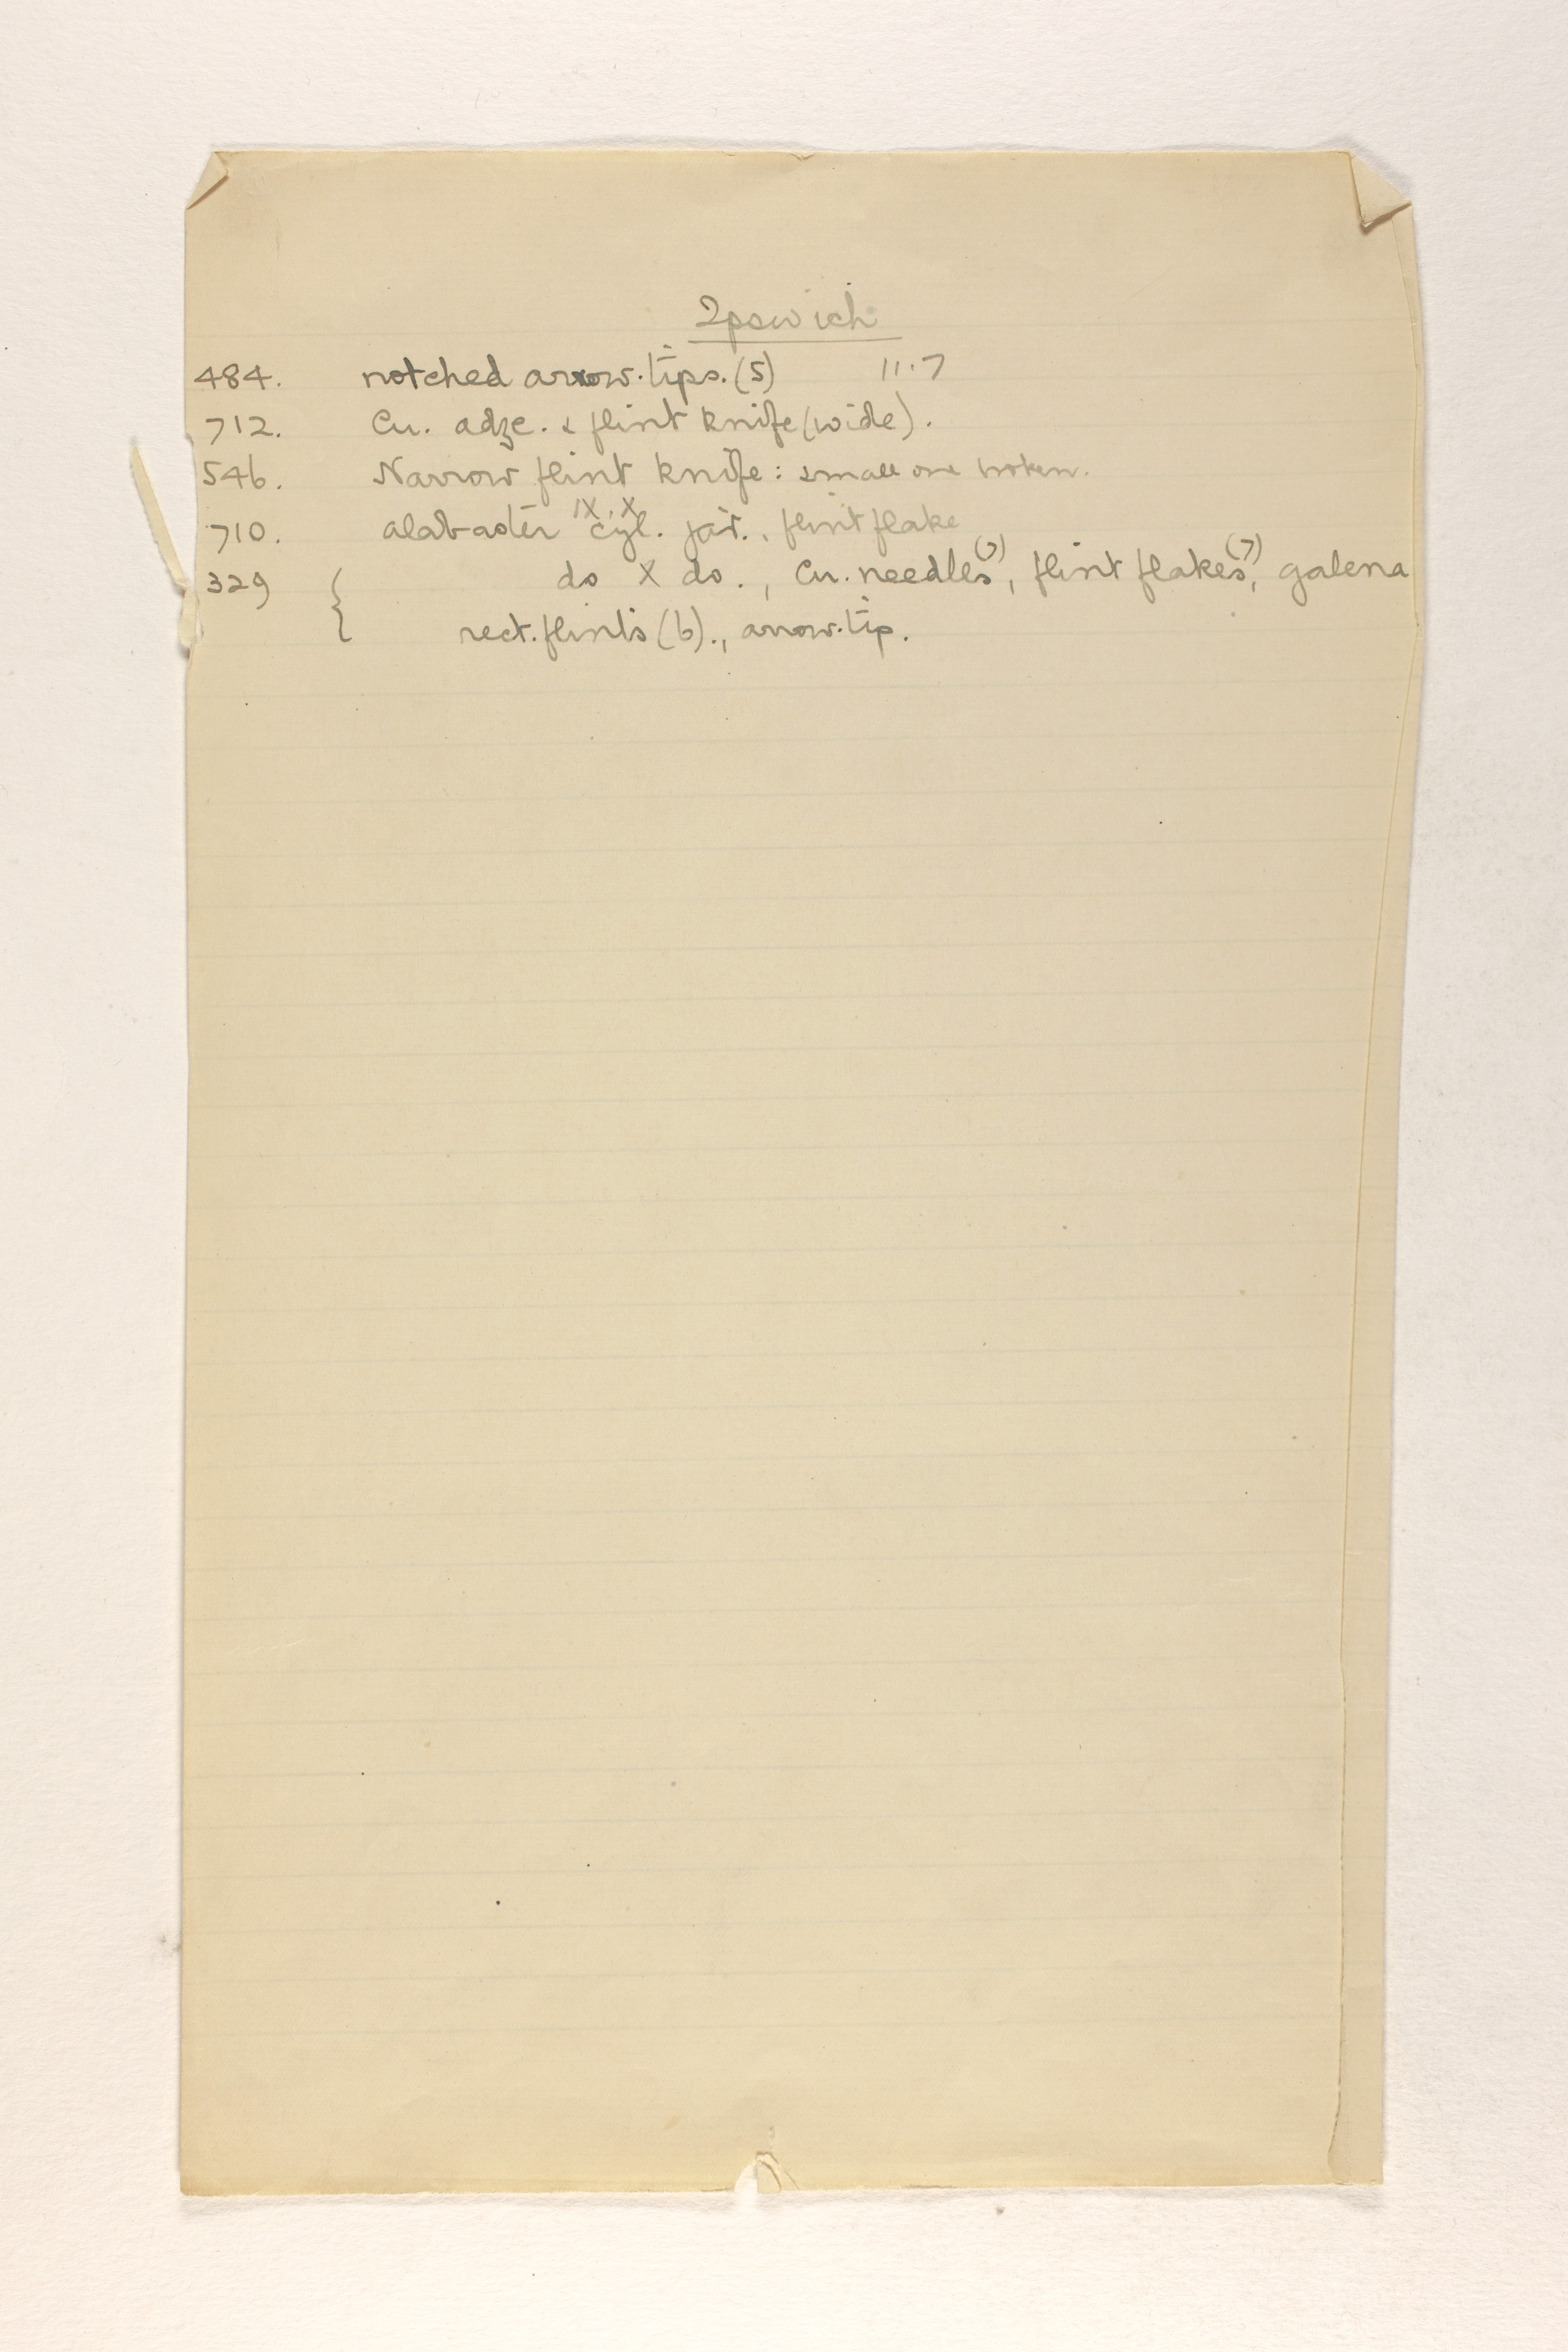 Ipswich
484. notched arrow.tips.(5) 11.7
712. Cu. adze. & flint knife (wide).
546. Narrow flint knife: small one broken.
710. alabaster cyl. jar., flint flake
329 { do X do., Cu. needles, flint flakes(7), galena
rect. flints (6)., arrow.tip.